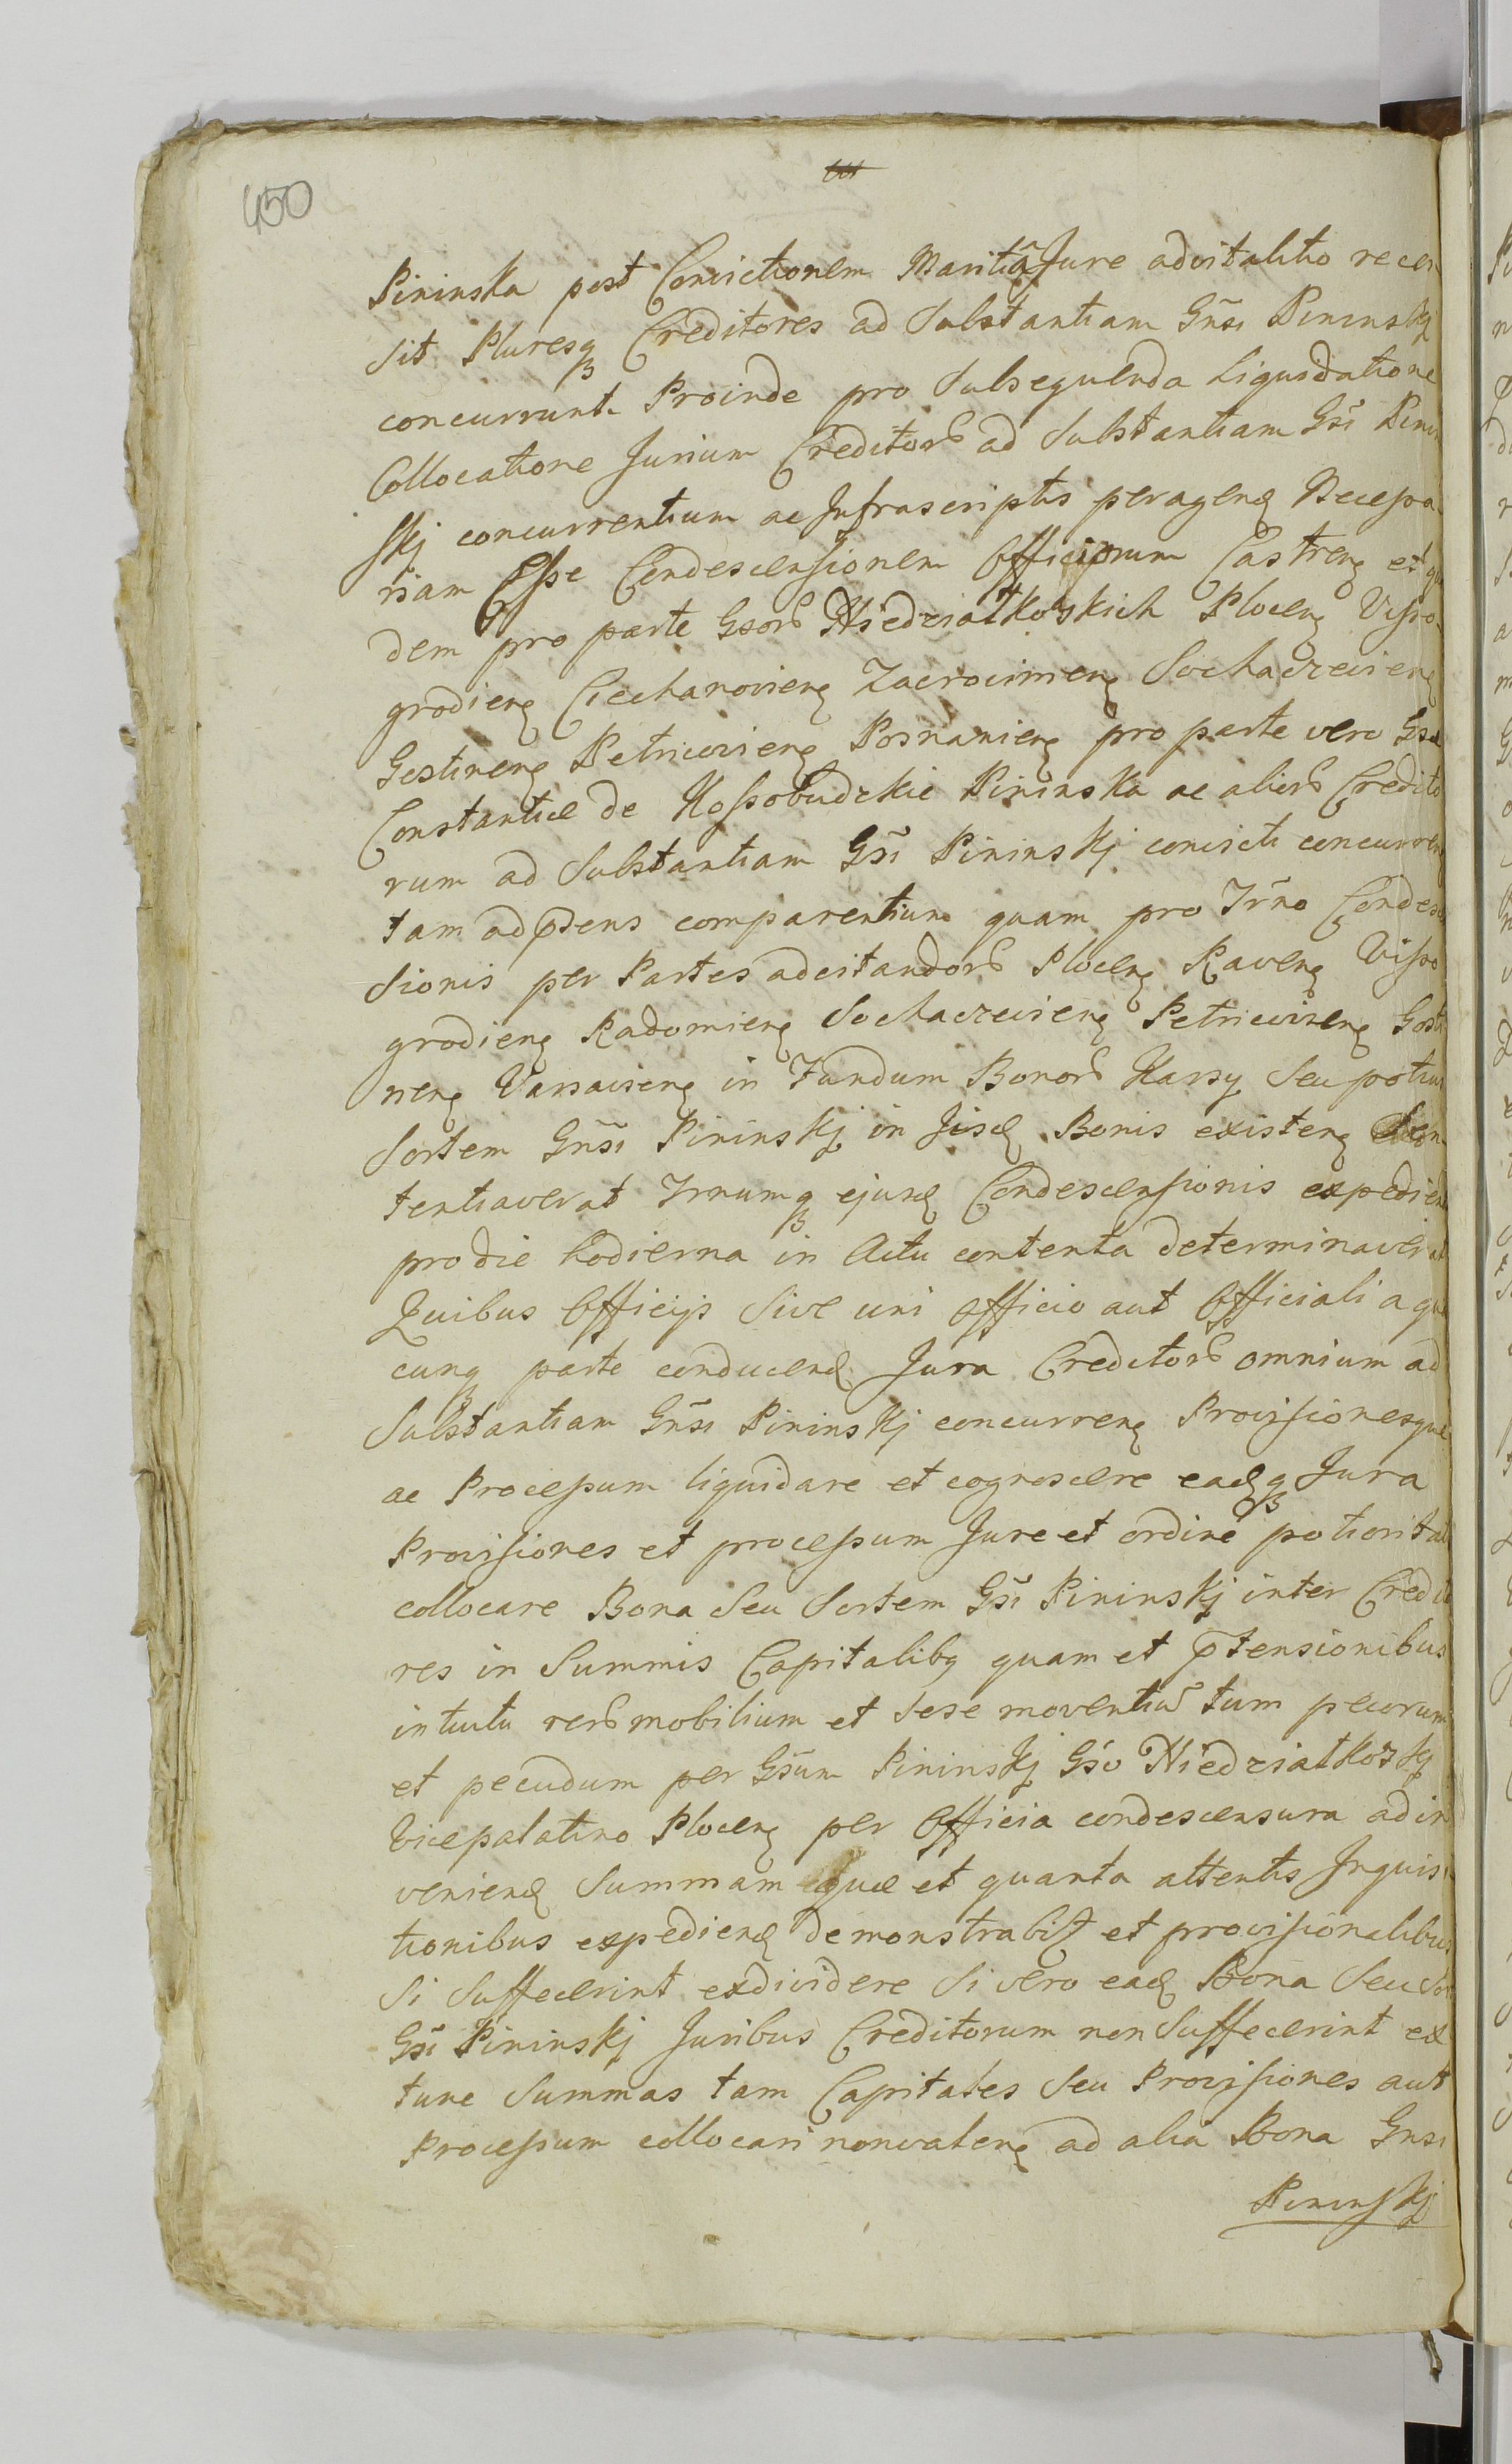 450
Pininska post Convictionem Mariti a Jure advitalitio recen
sit Pluresq₃ Creditores ad Substantiam Gñsi Pininskj
concurrunt. Proinde pro Subsequenda Liquidatione
Collocatione Jurium Creditorũ ad Substantiam Gsĩ Pinin
skj concurrentium ac Infrascriptis peragenđ Necessa
riam Esse Condescensionem Officiorum Castrenꝭ et qui
dem pro parte Gsorũ Niedziałkoskich Plocenꝭ Visso
grodienꝭ Ciechanovienꝭ Zacrocimenꝭ Sochaczevienꝭ
Gostinenꝭ Petricovienꝭ Posnanienꝭ pro parte vero Gsæ
Constantiæ de Kossobudzkie Pininska ac aliorũ Credito
rum ad Substantiam Gsĩ Pininskj convicti concurrenꝭ
tam ad p̃sens comparentium quam pro Trñno Condes
sionis per Partes adcitandorũ Plocenꝭ Ravenꝭ Visso
grodienꝭ Radomienꝭ Sochaczevienꝭ Petricovienꝭ Gosti
nenꝭ Varsavienꝭ in Fundum Bonorũ Karsy Seu potius
Sortem Gñsi Pininskj in Iisđ Bonis existenꝭ
tentiaverat Trnumq₃ ejusđ Condescensionis expedienđ
pro die hodierna in Actu contenta determinaverat
Quibus Officijs Sive uni Officio aut Officiali a qua
cunq₃ parte conducenđ Jura Creditorũ omnium ad
Substantiam Gñsi Pininskj concurrenꝭ Provisionesque
ac Processum liquidare et cognoscere eađq₃ Jura
Provisiones et processum Jure et ordine potioritat
collocare Bona Seu Sortem Gsĩ Pininskj inter Credito
res in Summis Capitalibꝗ quam et p̃tensionibus
intuitu rerũ mobilium et Sese moventiũ tum pecorum
et pecudum per Gsũm Pininskj Gsõ Niedziałkoskj
Vicepalatino Plocenꝭ per Officia condescensura adin
venienđ Summam quæ et quanta attentis Inquisi
tionibus expedienđ demonstrabit₇ et provisionalibus
Si Suffecerint exdividere Si vero eađ Bona Seu Sor
Gsĩ Pininskj Juribus Creditorum non Suffecerint ex
tunc Summas tam Capitales Seu Provisiones aut
Processum collocari nonvalenꝭ ad alia Bona Gnsi
Pininskj